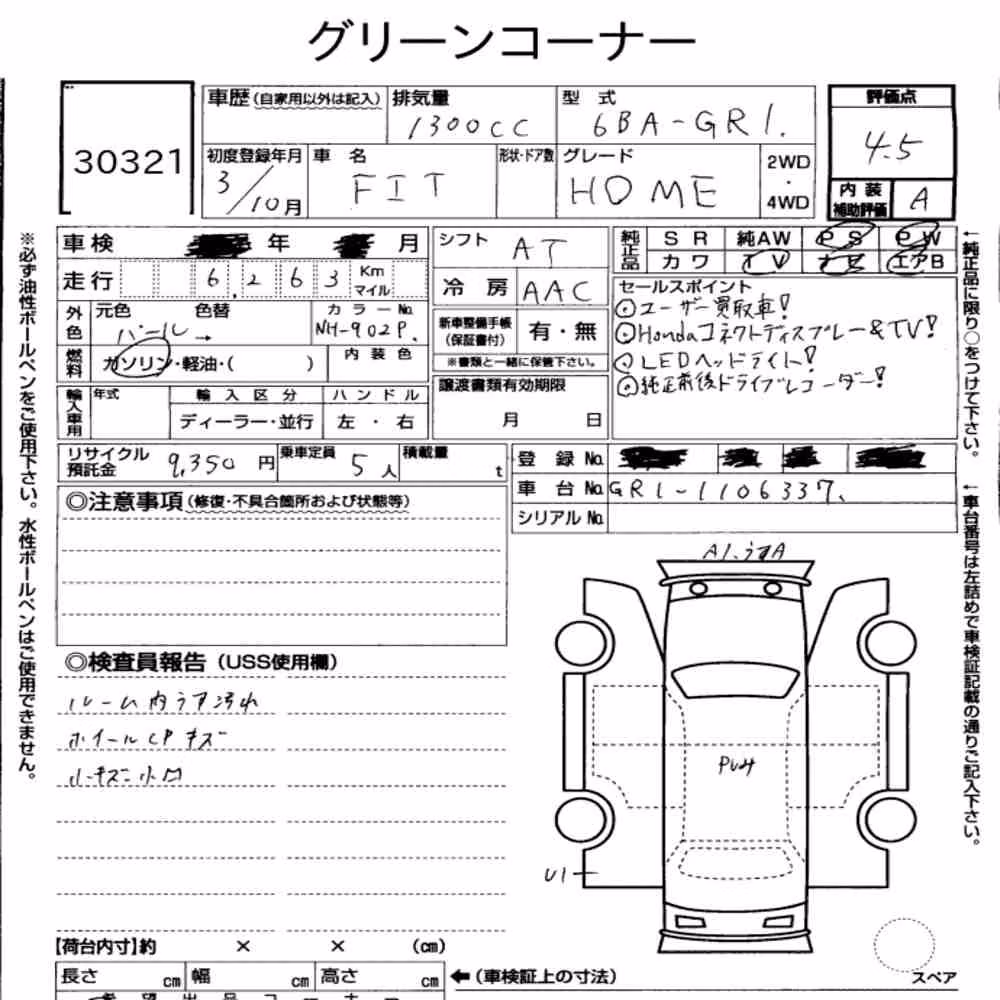 グリーンコーナー
30321
車歴(自家用以外は記入) 排気量 型式 評価点
1300CC 6BA-GR1. 4.5
初度登録年月 車名 形状・ドア数 グレード 2WD・4WD
3/10月 FIT HOME
内装補助評価 A
車検 年 月
走行 6,263 Km マイル
外色 元色 色替 カラーNo.
パール → NH-902P.
燃料 ガソリン・軽油・( ) 内装色
輸入車用 年式 輸入区分 ハンドル
ディーラー・並行 左・右
シフト AT
冷房 AAC
新車整備手帳(保証書付) 有・無
※書類と一緒に保管下さい。
譲渡書類有効期限
月 日
純正品 SR 純AW PS PW
カワ TV ナビ エアB
セールスポイント
⊙ユーザー買取車!
⊙Hondaコネクトディスプレー&TV!
⊙LEDヘッドライト!
⊙純正前後ドライブレコーダー!
リサイクル預託金 9,350円 乗車定員 5人 積載量 t
登録No.
車台No. GR1-1106337.
シリアルNo.
◎注意事項(修復・不具合箇所および状態等)
◎検査員報告(USS使用欄)
ルーム内うす汚れ
ホイールCPキズ
小キズ小凹
A1.うすA
U1
【荷台内寸】約 × × (cm)
長さ cm 幅 cm 高さ cm ←(車検証上の寸法)
スペア
※必ず油性ボールペンをご使用下さい。水性ボールペンはご使用できません。
←純正品に限り○をつけて下さい。
←車台番号は左詰めで車検証記載の通りご記入下さい。